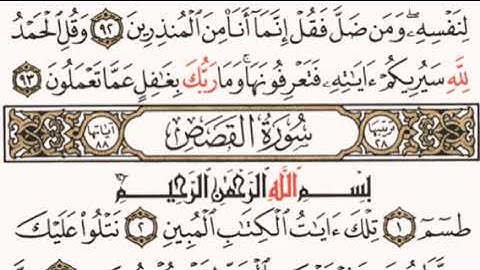 لِنَفْسِهِۦۖ وَمَن ضَلَّ فَقُلْ إِنَّمَآ أَنَا۠ مِنَ ٱلْمُنذِرِينَ ٩٢ وَقُلِ ٱلْحَمْدُ
لِلَّهِ سَيُرِيكُمْ ءَايَٰتِهِۦ فَتَعْرِفُونَهَاۚ وَمَا رَبُّكَ بِغَٰفِلٍ عَمَّا تَعْمَلُونَ ٩٣
ترتيبها ٢٨ سُورَةُ القَصَصِ آياتها ٨٨
بِسْمِ ٱللَّهِ ٱلرَّحْمَٰنِ ٱلرَّحِيمِ
طسٓمٓ ١ تِلْكَ ءَايَٰتُ ٱلْكِتَٰبِ ٱلْمُبِينِ ٢ نَتْلُوا۟ عَلَيْكَ